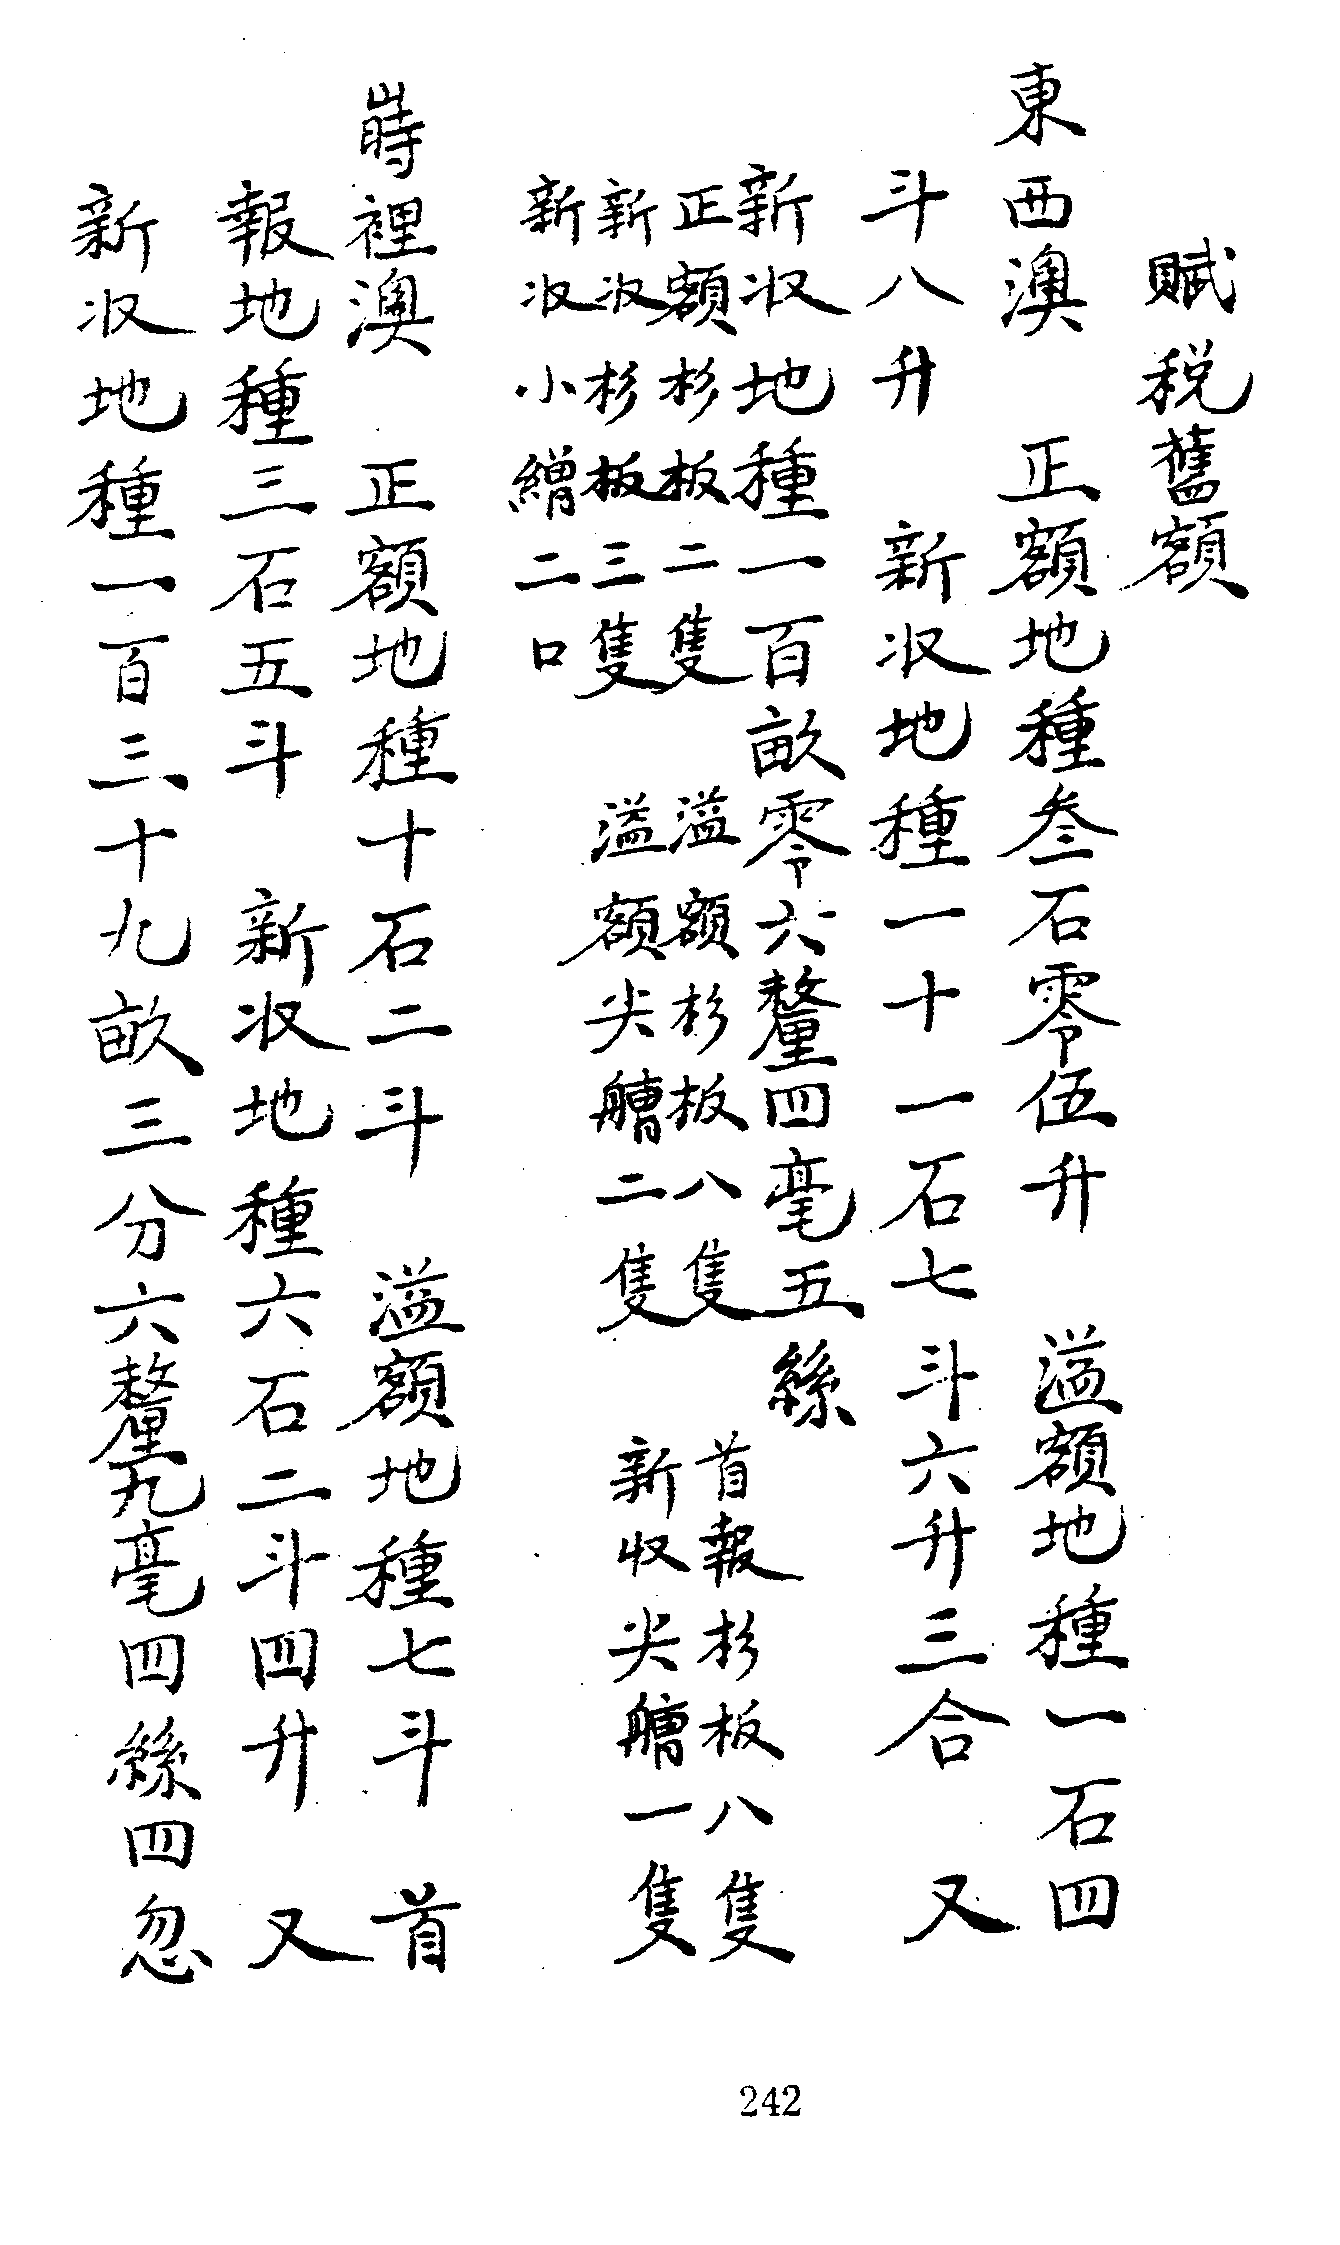 賦税舊額
東西澳　正額地種叁石零伍升　溢額地種一石四
斗八升　新收地種一十一石七斗六升三合　又
新收地種一百畝零六釐四毫五絲
正額杉板二隻　溢額杉板八隻　首報杉板八隻
新收杉板三隻　溢額尖艚二隻　新收尖艚一隻
新收小繒二口
嵵裡澳　正額地種十石二斗　溢額地種七斗　首
報地種三石五斗　新收地種六石二斗四升　又
新收地種一百三十九畝三分六釐九毫四絲四忽
242